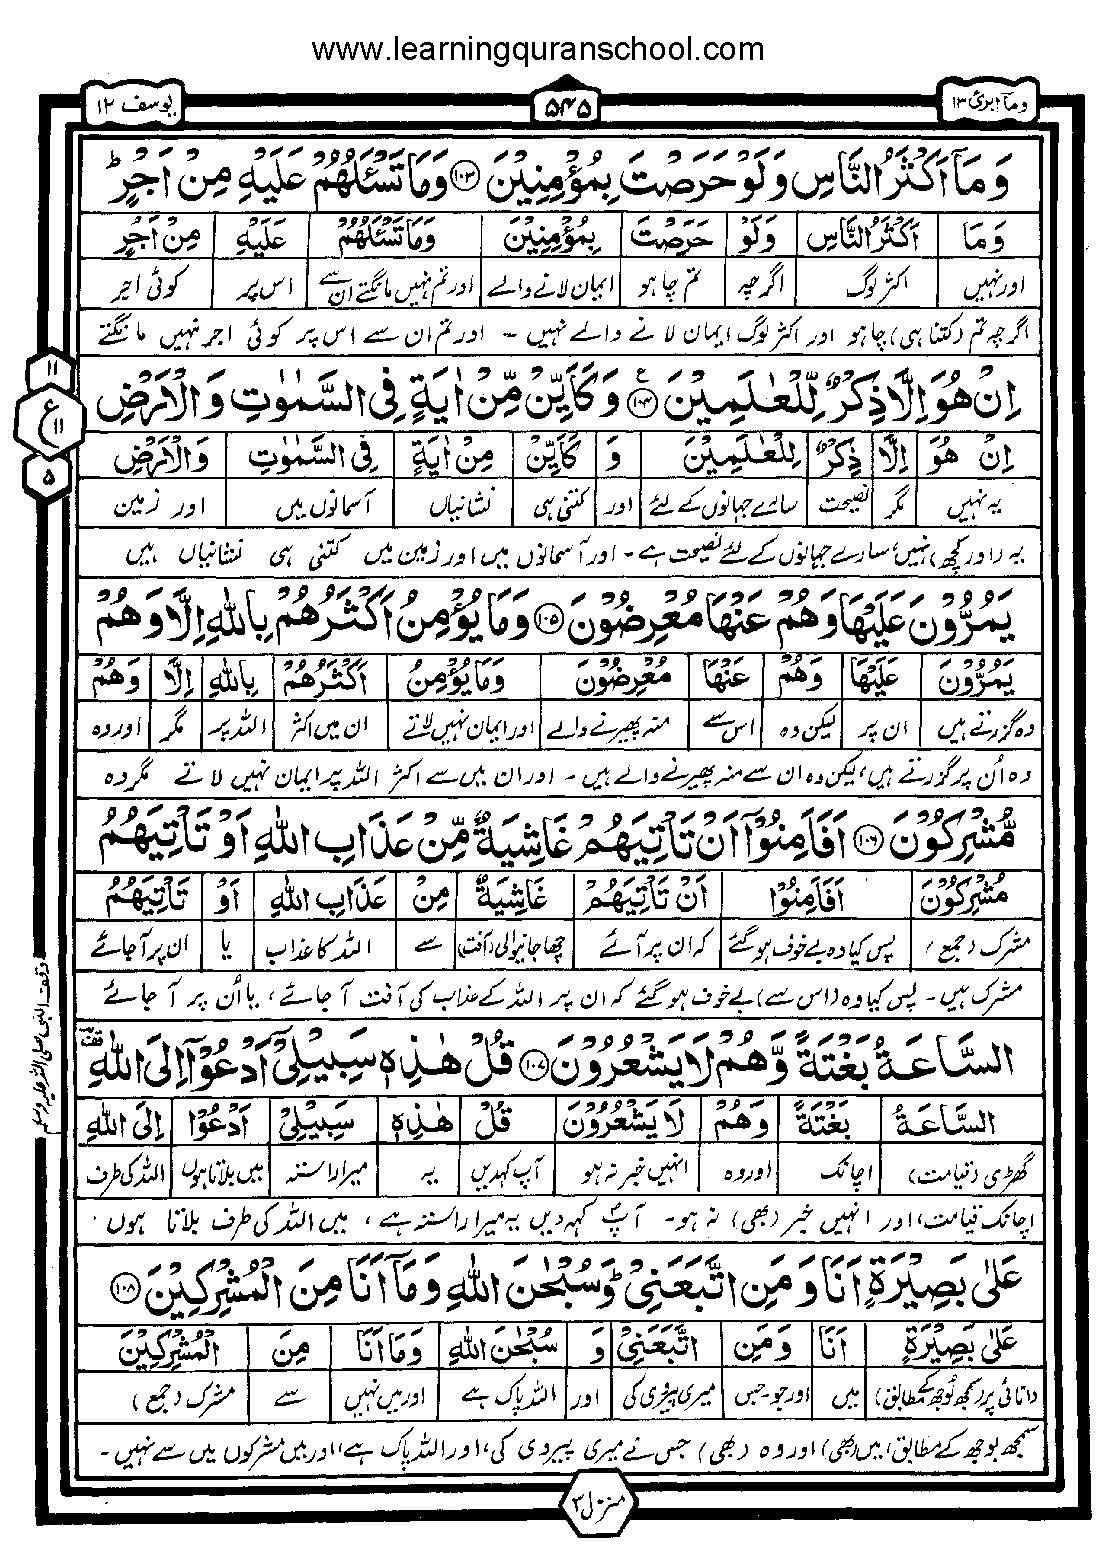 www.learningquranschool.com
وما ابرئ ۱۳
۵۴۵
یوسف ۱۲
وَمَآ اَكْثَرُ النَّاسِ وَلَوْ حَرَصْتَ بِمُؤْمِنِيْنَ ۝۱۰۳ وَمَا تَسْـَٔلُهُمْ عَلَيْهِ مِنْ اَجْرٍ ؕ
وَمَا اَكْثَرُ النَّاسِ وَلَوْ حَرَصْتَ بِمُؤْمِنِيْنَ وَمَا تَسْـَٔلُهُمْ عَلَيْهِ مِنْ اَجْرٍ
اور نہیں اکثر لوگ اگرچہ تم چاہو ایمان لانے والے اور تم نہیں مانگتے ان سے اس پر کوئی اجر
اگرچہ تم (کتنا ہی) چاہو اور اکثر لوگ ایمان لانے والے نہیں - اور تم ان سے اس پر کوئی اجر نہیں مانگتے
اِنْ هُوَ اِلَّا ذِكْرٌ لِّلْعٰلَمِيْنَ ۝۱۰۴ ع وَكَاَيِّنْ مِّنْ اٰيَةٍ فِي السَّمٰوٰتِ وَالْاَرْضِ
اِنْ هُوَ اِلَّا ذِكْرٌ لِلْعٰلَمِيْنَ وَ كَاَيِّنْ مِنْ اٰيَةٍ فِي السَّمٰوٰتِ وَالْاَرْضِ
یہ نہیں مگر نصیحت سارے جہانوں کے لئے اور کتنی ہی نشانیاں آسمانوں میں اور زمین
یہ (اور کچھ) نہیں، سارے جہانوں کے لئے نصیحت ہے - اور آسمانوں میں اور زمین میں کتنی ہی نشانیاں ہیں
۱۱
ع ۱۱
۵
يَمُرُّوْنَ عَلَيْهَا وَهُمْ عَنْهَا مُعْرِضُوْنَ ۝۱۰۵ وَمَا يُؤْمِنُ اَكْثَرُهُمْ بِاللّٰهِ اِلَّا وَهُمْ
يَمُرُّوْنَ عَلَيْهَا وَهُمْ عَنْهَا مُعْرِضُوْنَ وَمَا يُؤْمِنُ اَكْثَرُهُمْ بِاللّٰهِ اِلَّا وَهُمْ
وہ گزرتے ہیں ان پر لیکن وہ اس سے منہ پھیرنے والے اور ایمان نہیں لاتے ان میں اکثر اللہ پر مگر اور وہ
وہ اُن پر گزرتے ہیں، لیکن وہ ان سے منہ پھیرنے والے ہیں - اور ان میں سے اکثر اللہ پر ایمان نہیں لاتے مگر وہ
مُّشْرِكُوْنَ ۝۱۰۶ اَفَاَمِنُوْٓا اَنْ تَاْتِيَهُمْ غَاشِيَةٌ مِّنْ عَذَابِ اللّٰهِ اَوْ تَاْتِيَهُمُ
مُشْرِكُوْنَ اَفَاَمِنُوْا اَنْ تَاْتِيَهُمْ غَاشِيَةٌ مِنْ عَذَابِ اللّٰهِ اَوْ تَاْتِيَهُمُ
مشرک (جمع) پس کیا وہ بے خوف ہو گئے کہ ان پر آئے چھا جانیوالی (آفت) سے اللہ کا عذاب یا ان پر آجائے
مشرک ہیں - پس کیا وہ (اس سے) بے خوف ہو گئے کہ ان پر اللہ کے عذاب کی آفت آ جائے، یا اُن پر آ جائے
وقف النبی صلی اللہ علیہ وسلم
السَّاعَةُ بَغْتَةً وَّهُمْ لَا يَشْعُرُوْنَ ۝۱۰۷ قُلْ هٰذِهٖ سَبِيْلِيْٓ اَدْعُوْٓا اِلَى اللّٰهِ
السَّاعَةُ بَغْتَةً وَهُمْ لَا يَشْعُرُوْنَ قُلْ هٰذِهٖ سَبِيْلِيْ اَدْعُوْا اِلَى اللّٰهِ
گھڑی (قیامت) اچانک اور وہ انہیں خبر نہ ہو آپ کہدیں یہ میرا راستہ میں بلاتا ہوں اللہ کی طرف
اچانک قیامت، اور انہیں خبر (بھی) نہ ہو - آپ کہہ دیں یہ میرا راستہ ہے، میں اللہ کی طرف بلاتا ہوں
عَلٰى بَصِيْرَةٍ اَنَا وَمَنِ اتَّبَعَنِيْ ؕ وَسُبْحٰنَ اللّٰهِ وَمَآ اَنَا مِنَ الْمُشْرِكِيْنَ ۝۱۰۸
عَلٰى بَصِيْرَةٍ اَنَا وَمَنِ اتَّبَعَنِيْ وَ سُبْحٰنَ اللّٰهِ وَمَا اَنَا مِنَ الْمُشْرِكِيْنَ
دانائی پر (سمجھ بوجھ کے مطابق) میں اور جو۔جس میری پیروی کی اور اللہ پاک ہے اور میں نہیں سے مشرک (جمع)
سمجھ بوجھ کے مطابق، میں (بھی) اور وہ (بھی) جس نے میری پیروی کی، اور اللہ پاک ہے، اور میں مشرکوں میں سے نہیں -
منزل ۳